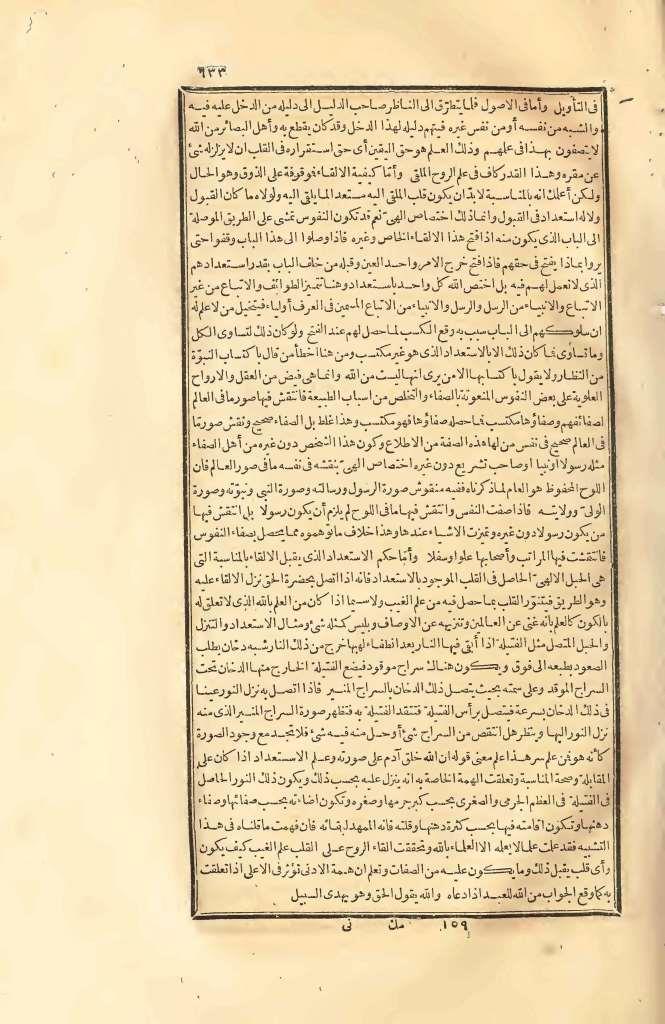 ٦٣٣
فى التأويل وأما فى الاصول فلما يتطرّق الى الناظر صاحب الدليل الى دليله من الدخل عليه فيه
والشبه من نفسه أو من نفس غيره فيتهم دليله لهذا الدخل وقد كان يقطع به وأهل البصائر من الله
لا يتصفون بهذا فى علمهم وذلك العلم هو حق اليقين أى حق استقراره فى القلب ان لا يزلزله شئ
عن مقره وهذا القدر كاف فى علم الروح الملقى وأمّا كيفية الالقاء فموقوفة على الذوق وهو الحال
ولكن أعلمك انه بالمناسبة لابد أن يكون قلب الملقى اليه مستعدا لما يلقى اليه ولولاه ما كان القبول
وليس له استعداد فى القبول وانما ذلك اختصاص الهىّ نعم قد تكون النفوس تمشى على الطريق الموصلة
الى الباب الذى يكون منه اذا فتح هذا الالقاء الخاص وغيره فاذا وصلوا الى هذا الباب وقفوا حتى
يروا بماذا يفتح فى حقهم فاذا فتح خرج الامر واحد العين وقبله من خلف الباب بقدر استعدادهم
الذى لا تعمل لهم فيه بل اختص الله كل واحد باستعداد وهنا تتميز الطوائف والاتباع من غير
الاتباع والانبياء من الرسل والرسل والانبياء من الاتباع المسمين فى العرف أولياء فيتخيل من لا علم له
ان سلوكهم الى الباب سبب به وقع الكسب لما حصل لهم عند الفتح ولو كان ذلك لتساوى الكل
وما تساوى فما كان ذلك الا بالاستعداد الذى هو غير مكتسب ومن هنا أخطأ من قال باكتساب النبوّة
من النظار ولا يقول باكتسابها الا من يرى انها ليست من الله وانما هى فيض من العقل والارواح
العلوية على بعض النفوس المنعوتة بالصفاء والتخلص من اسباب الطبيعة فانتقش فيها صور ما فى العالم
لصفائهم وصفاؤها مكتسب فما حصله صفاؤها فهو مكتسب وهذا غلط بل الصفاء صحيح ونقش صور ما
فى العالم صحيح فى نفس من لها هذه الصفة من الاطلاع وكون هذا الشخص دون غيره من أهل الصفاء
مثله رسولا أو نبيا أو صاحب تشريع دون غيره اختصاص الهىّ ينقشه فى نفسه ما فى صور العالم فان
اللوح المحفوظ هو العام لما ذكرناه ففيه منقوش صورة الرسول ورسالته وصورة النبي ونبوّته وصورة
الولىّ وولايته فاذا صفت النفس وانتقش فيها ما فى اللوح لم يلزم أن يكون رسولا بل انتقش فيها
من يكون رسولا دون غيره وتميزت الاشياء عندها وهذا خلاف ما توهموه مما يحصل بصفاء النفوس
فانتقشت فيها المراتب وأصحابها علوا وسفلا وأمّا حكم الاستعداد الذى يقبل الالقاء بالمناسبة التى
هى الحبل الالهىّ الحاصل فى القلب الموجود بالاستعداد فانه اذا اتصل بحضرة الحق نزل الالقاء عليه
وهو الطريق فيتنور القلب بما حصل فيه من علم الغيب ولا سيما اذا كان من العلم بالله الذى لا تعلق له
بالكون كالعلم بانه غنى عن العالمين وتنزيهه عن الاوصاف وبليس كمثله شئ ومثال الاستعداد والتنزل
والحبل المتصل مثل الفتيلة اذا أبقى فيها النار بعد انطفاء لهبها خرج من ذلك النار شبه دخان يطلب
الصعود بطبعه الى فوق ويكون هناك سراج موقود فيضع الفتيلة الخارج منها الدخان تحت
السراج الموقد وعلى سمته بحيث يتصل ذلك الدخان بالسراج المنير فاذا اتصل به نزل النور عينا
فى ذلك الدخان بسرعة فيتصل برأس الفتيلة فتتقد الفتيلة به فتظهر صورة السراج المنير الذى منه
نزل النور اليها وينظر هل انتقص من السراج شئ أو حل منه فيه شئ فلا تجد مع وجود الصورة
كأنه هو فمن علم سر هذا علم معنى قوله ان الله خلق آدم على صورته وعلم الاستعداد اذا كان على
المقابلة وصحة المناسبة وتعلقت الهمة الخاصة به انه ينزل عليه بحسب ذلك ويكون ذلك النور الحاصل
فى الفتيلة فى العظم الجرمى والصغرى بحسب كبر جرمها وصغره وتكون اضاءته بحسب صفائها وصفاء
دهنها وتكون اقامته فيها بحسب كثرة دهنها وقلته فانه الممهد لبقائه فان فهمت ما قلناه فى هذا
التشبيه فقد علمت علما لا يعلمه الا العلماء بالله وتحققت القاء الروح على القلب علم الغيب كيف يكون
وأى قلب يقبل ذلك وما يكون عليه من الصفات وتعلم ان همة الادنى تؤثر فى الاعلى اذا تعلقت
به كما وقع الجواب من الله للعبد اذا دعاه والله يقول الحق وهو يهدى السبيل
١٥٩ مك نى